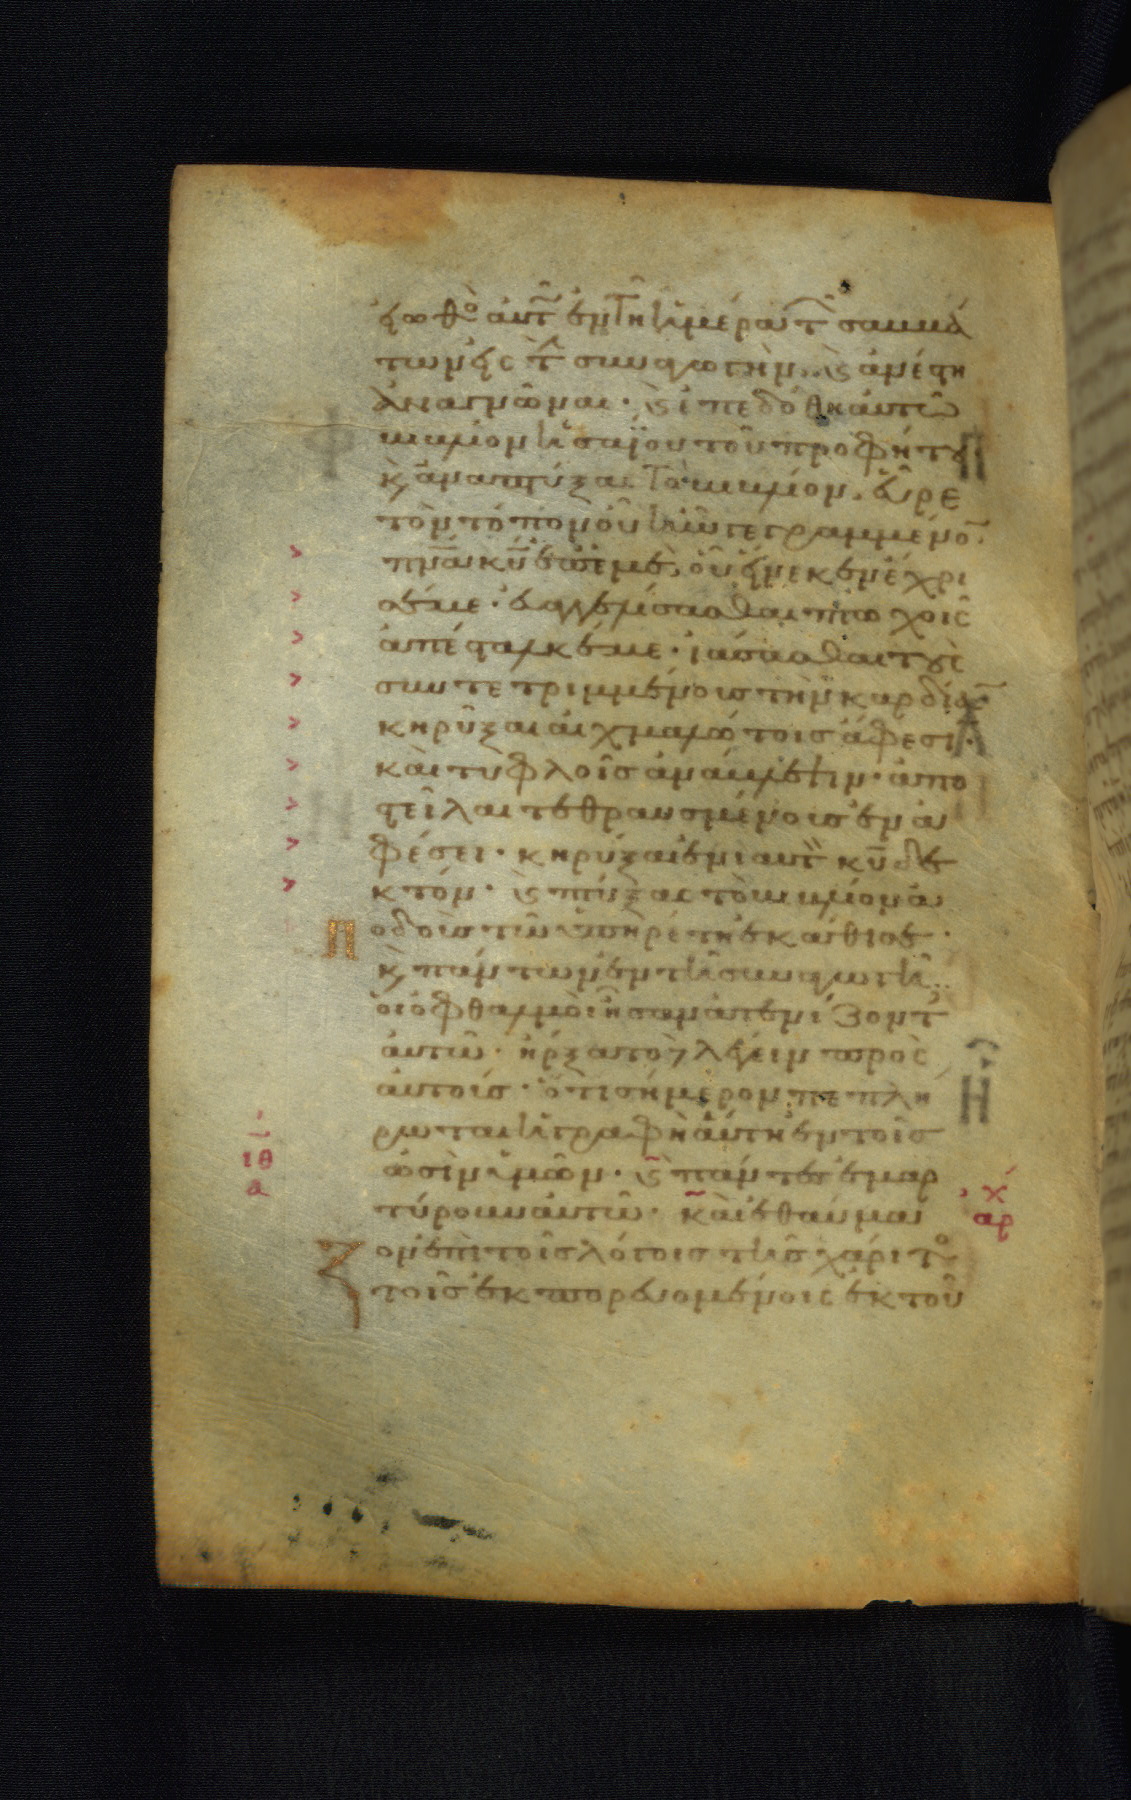 ἐιωθὸ ἀυτ ἐν τῆ ἡμέρα τ σαββά
των εἰς τ συναγωγὴν. κ ἀνέστη
ἀναγνῶναι· κ ἐπεδόθη ἀυτῶ
βιβλίον ἡσαΐου τοῦ προφήτου
κ ἀναπτύξας τὸ βιβλίον. εὗρε
τὸν τόπον οὗ ἦν γεγραμμένο
πνα κυ ἐπ ἐμέ, οὗ εἵνεκεν ἔχρι
σέ με· εὐαγγελίσασθαι πτωχοῖς
ἀπέσταλκέ με· ἰάσασθαι τοὺς
συντετριμμένους τὴν καρδίαν
κηρῦξαι αἰχμαλώτοις ἄφεσιν·
καὶ τυφλοῖς ἀνάβλεψιν· ἀπο
στεῖλαι τεθραυσμένους ἐν ἀ
φέσει· κηρύξαι ἐνιαυτὸν κυ δε
κτόν· κ πτύξας τὸ βιβλίον ἀ
ποδοὺς τῶ ὑπηρέτη ἐκάθισε·
κ πάντων ἐν τῆ συναγωγῆ
οἱ ὀφθαλμοὶ ἦσαν ἀτενίζοντ
ἀυτῶ· ἤρξατο λέγειν πρὸς
ἀυτούς· ὅτι σήμερον πεπλή
ρωται ἡ γραφὴ ἅυτη ἐν τοῖς
ὠσὶν ὑμῶν· κ πάντες ἐμαρ
τύρουν ἀυτῶ· καὶ ἐθαύμα
ζον ἐπὶ τοῖς λόγοις τῆς χάριτο
τοῖς ἐκπορευομένοις ἐκ τοῦ
ιθ
α
χ
αρ